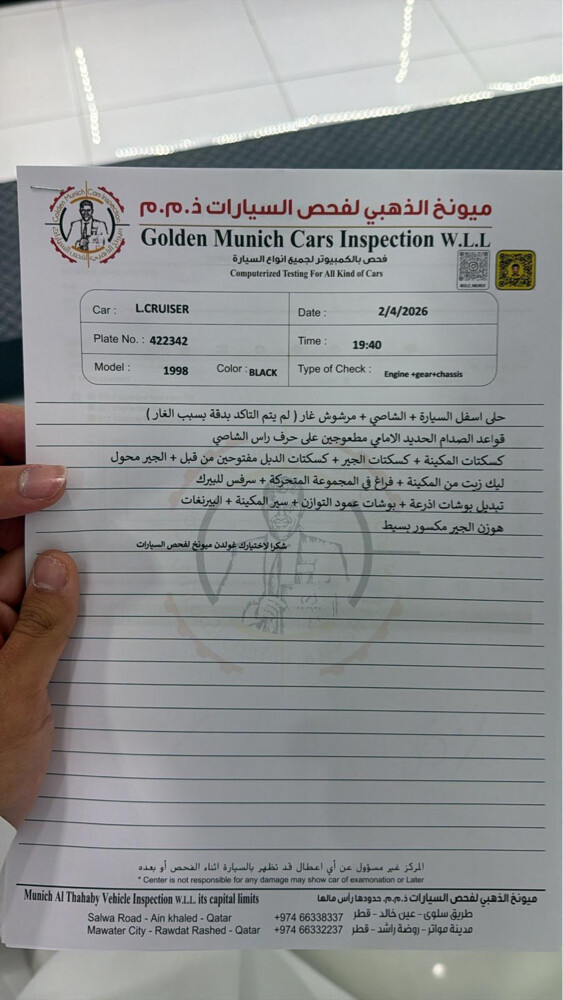 ميونخ الذهبي لفحص السيارات ذ.م.م
Golden Munich Cars Inspection W.L.L
فحص بالكمبيوتر لجميع انواع السيارة
Computerized Testing For All Kind of Cars
Car : L.CRUISER
Date : 2/4/2026
Plate No. : 422342
Time : 19:40
Model : 1998 Color : BLACK
Type of Check : Engine +gear+chassis
حلى اسفل السيارة + الشاصي + مرشوش غار ( لم يتم التاكد بدقة بسبب الغار )
قواعد الصدام الحديد الامامي مطعوجين على حرف راس الشاصي
كسكتات المكينة + كسكتات الجير + كسكتات الدبل مفتوحين من قبل + الجير محول
ليك زيت من المكينة + فراغ في المجموعة المتحركة + سرفس للبيرك
تبديل بوشات اذرعة + بوشات عمود التوازن + سير المكينة + البيرنغات
هوزن الجير مكسور بسيط
شكرا لاختيارك غولدن ميونخ لفحص السيارات
المركز غير مسؤول عن أي اعطال قد تظهر بالسيارة اثناء الفحص أو بعده
* Center is not responsible for any damage may show car of examonation or Later
Munich Al Thahaby Vehicle Inspection W.L.L. its capital limits
ميونيخ الذهبي لفحص السيارات ذ.م.م. حدودها رأس مالها
Salwa Road - Ain khaled - Qatar +974 66338337 طريق سلوى - عين خالد - قطر
Mawater City - Rawdat Rashed - Qatar +974 66332237 مدينة مواتر - روضة راشد - قطر